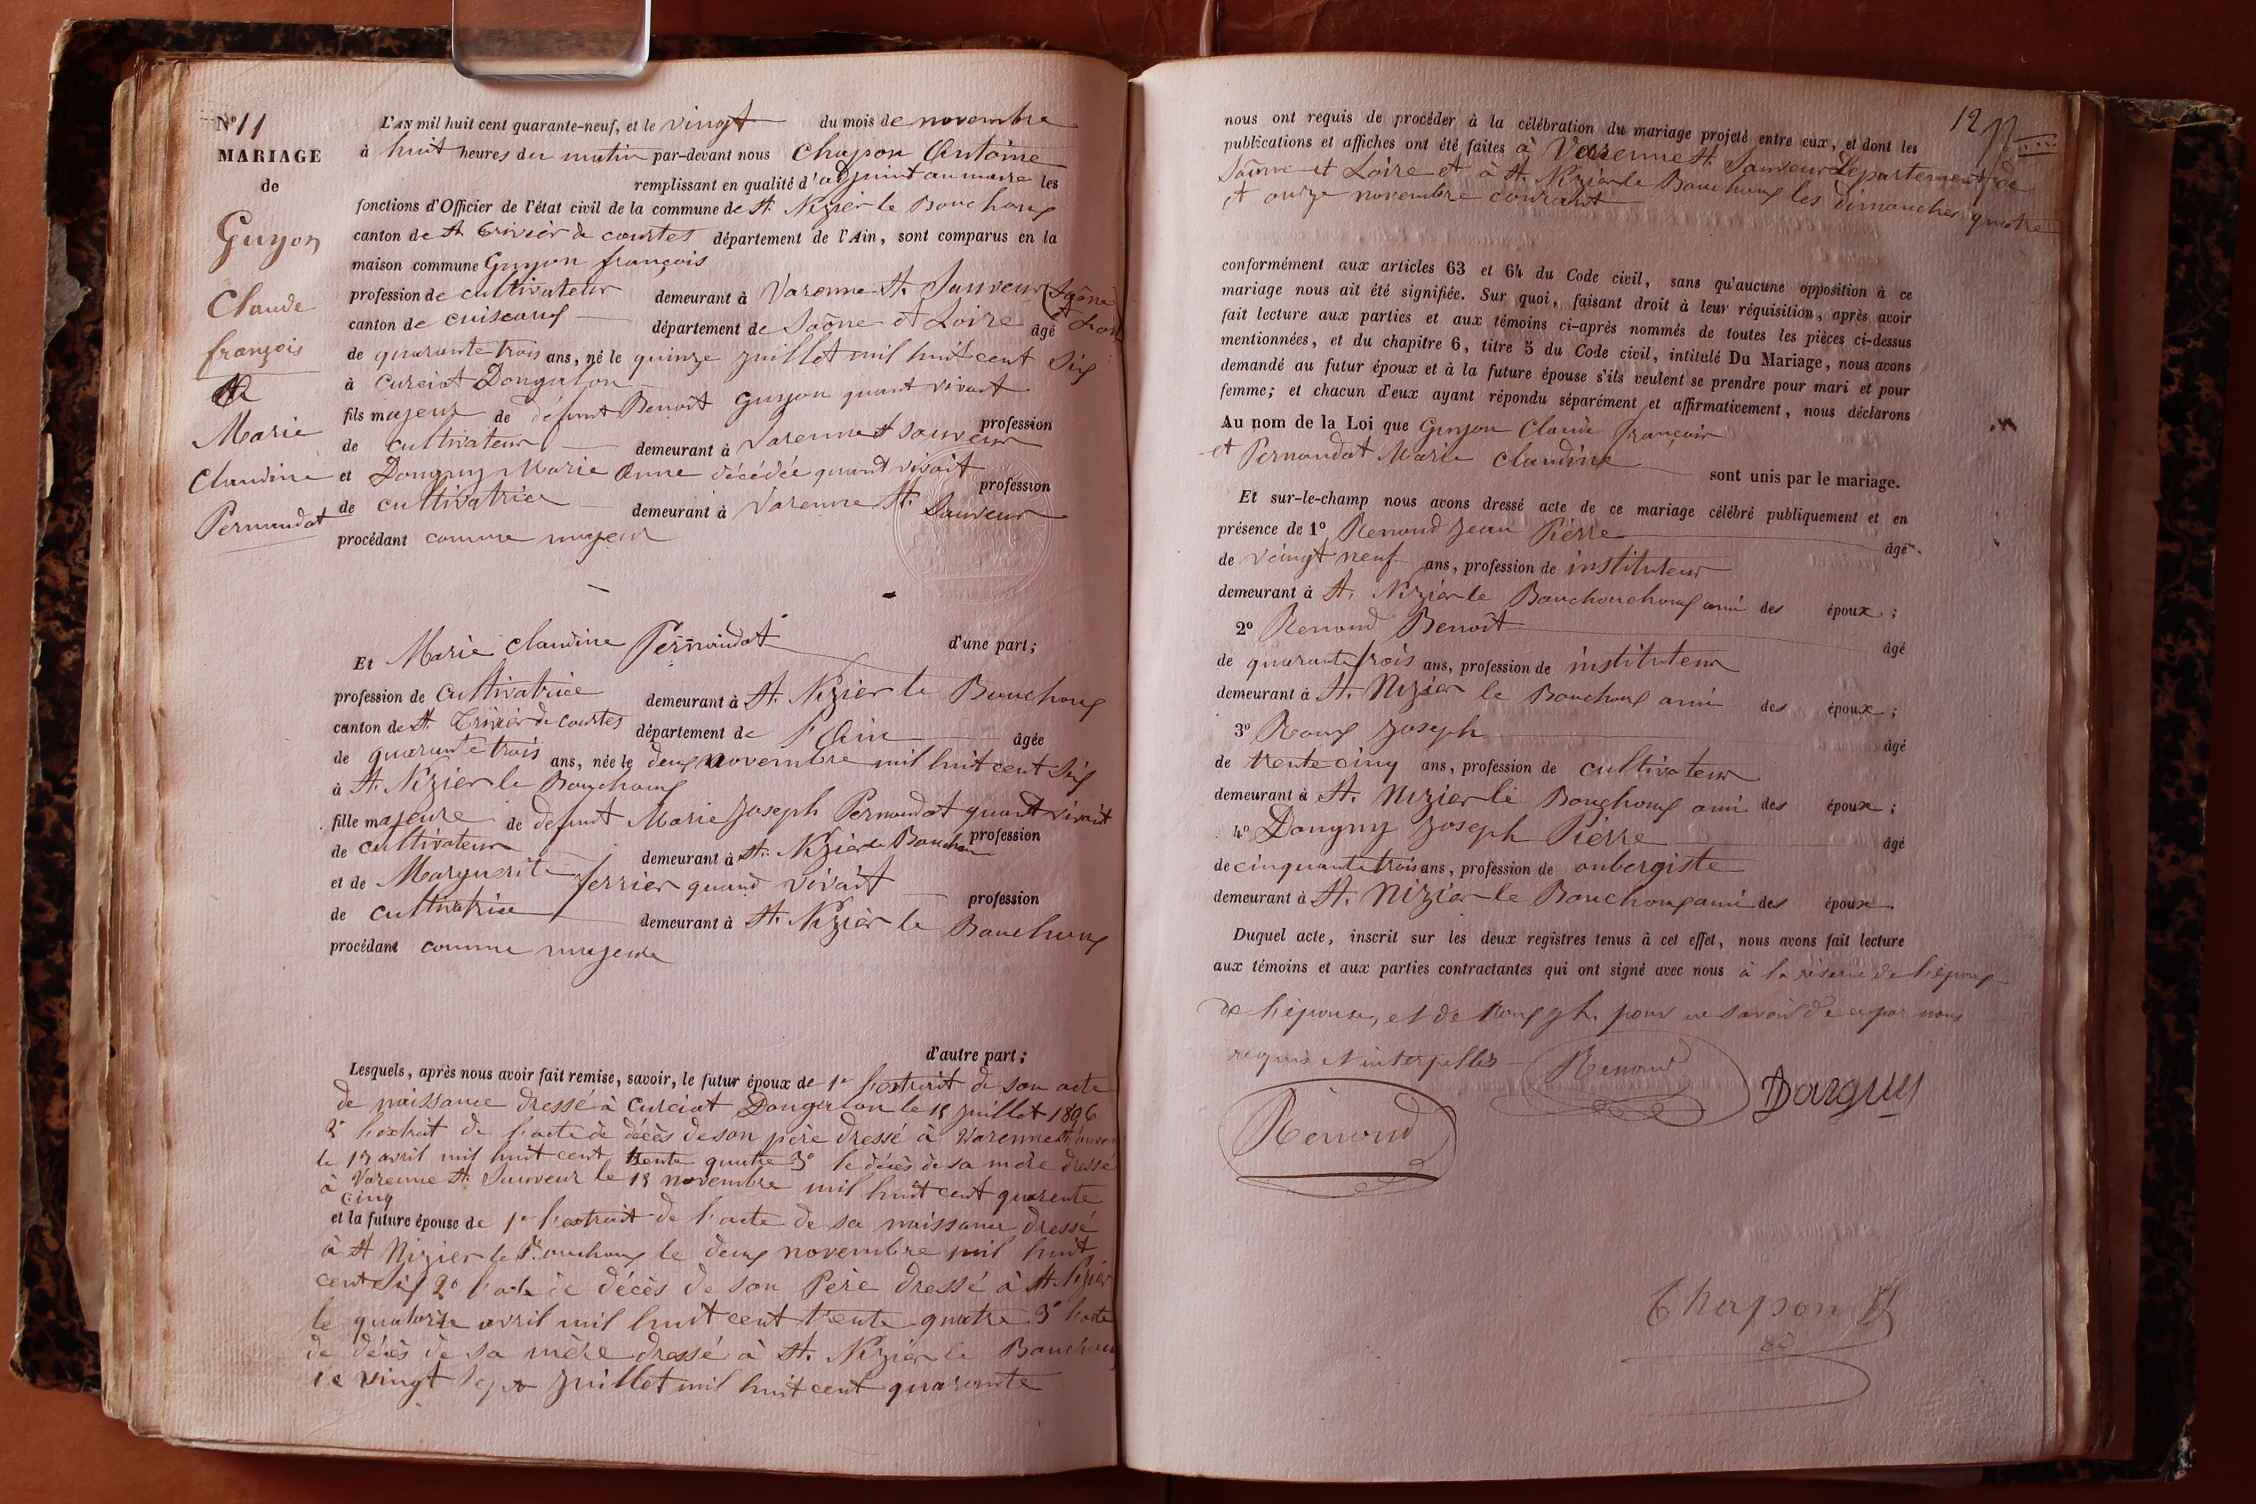 N° 11
MARIAGE
de
Guyon
Claude
françois
et
Marie
Claudine
Pernaudat
L'AN mil huit cent quarante-neuf, et le vingt du mois de novembre
à huit heures du matin par-devant nous Chapon Antoine
remplissant en qualité d'adjoint au maire les
fonctions d'Officier de l'état civil de la commune de St. Nizier le Bouchoux
canton de St Trivier de courtes département de l'Ain, sont comparus en la
maison commune Guyon françois
profession de cultivateur demeurant à Varenne St. Sauveur (Saône
canton de cuiseaux département de Saône et Loire âgé et Loire
de quarante trois ans, né le quinze juillet mil huit cent six
à Curciat Dongalon
fils majeur de défunt Benoit Guyon quant vivait
profession
de cultivateur demeurant à Varenne St Sauveur
et Donguy Marie Anne décédée quand vivait
profession
de cultivatrice demeurant à Varenne St. Sauveur
procédant comme majeur
d'une part;
Et Marie Claudine Pernaudat
profession de cultivatrice demeurant à St. Nizier le Bouchoux
canton de St. Trivier de courtes département de l'Ain âgée
de quarante trois ans, née le deux novembre mil huit cent six
à St. Nizier le Bouchoux
fille majeure de défunt Marie Joseph Pernaudat quant vivait
profession
de cultivateur demeurant à St. Nizier le Bouchoux
et de Marguerite ferrier quand vivait
profession
de cultivatrice demeurant à St. Nizier le Bouchoux
procédant comme majeure
d'autre part;
Lesquels, après nous avoir fait remise, savoir, le futur époux de 1° l'extrait de son acte
de naissance dressé à Curciat Dongalon le 15 juillet 1806
2° l'extrait de l'acte de décès de son père dressé à Varenne St Sauveur
le 17 avril mil huit cent trente quatre 3° le décès de sa mère dressé
à Varenne St Sauveur le 15 novembre mil huit cent quarente
cinq
et la future épouse de 1° l'extrait de l'acte de sa naissance dressé
à St Nizier le Bouchoux le deux novembre mil huit
cent six 2° l'acte de décès de son Père dressé à St. Nizier
le quatorze avril mil huit cent trente quatre 3° l'acte
de décès de sa mère dressé à St. Nizier le Bouchoux
le vingt sept juillet mil huit cent quarante
12
nous ont requis de procéder à la célébration du mariage projeté entre eux, et dont les
publications et affiches ont été faites à Varenne St. Sauveur Département de
Saône et Loire et à St. Nizier le Bouchoux les dimanches quatre
et onze novembre courant
conformément aux articles 63 et 64 du Code civil, sans qu'aucune opposition à ce
mariage nous ait été signifiée. Sur quoi, faisant droit à leur réquisition, après avoir
fait lecture aux parties et aux témoins ci-après nommés de toutes les pièces ci-dessus
mentionnées, et du chapitre 6, titre 5 du Code civil, intitulé Du Mariage, nous avons
demandé au futur époux et à la future épouse s'ils veulent se prendre pour mari et pour
femme; et chacun d'eux ayant répondu séparément et affirmativement, nous déclarons
Au nom de la Loi que Guyon Claude françois
et Pernaudat Marie Claudine sont unis par le mariage.
Et sur-le-champ nous avons dressé acte de ce mariage célébré publiquement et en
présence de 1° Renoud Jean Pierre âgé
de veingt neuf ans, profession de instituteur
demeurant à St. Nizier le Bouchouchoux ami des époux;
2° Renoud Benoît âgé
de quarante trois ans, profession de instituteur
demeurant à St. Nizier le Bouchoux ami des époux;
3° Roux Joseph âgé
de trente cinq ans, profession de cultivateur
demeurant à St. Nizier le Bouchoux ami des époux;
4° Donguy Joseph Pierre âgé
de cinquante trois ans, profession de aubergiste
demeurant à St. Nizier le Bouchoux ami des époux.
Duquel acte, inscrit sur les deux registres tenus à cet effet, nous avons fait lecture
aux témoins et aux parties contractantes qui ont signé avec nous à la réserve de l'époux
de l'épouse, et de Roux jh. pour ne savoir de ce par nous
requis et interpellés
Renoud
Donguy
Renoud
Chapon